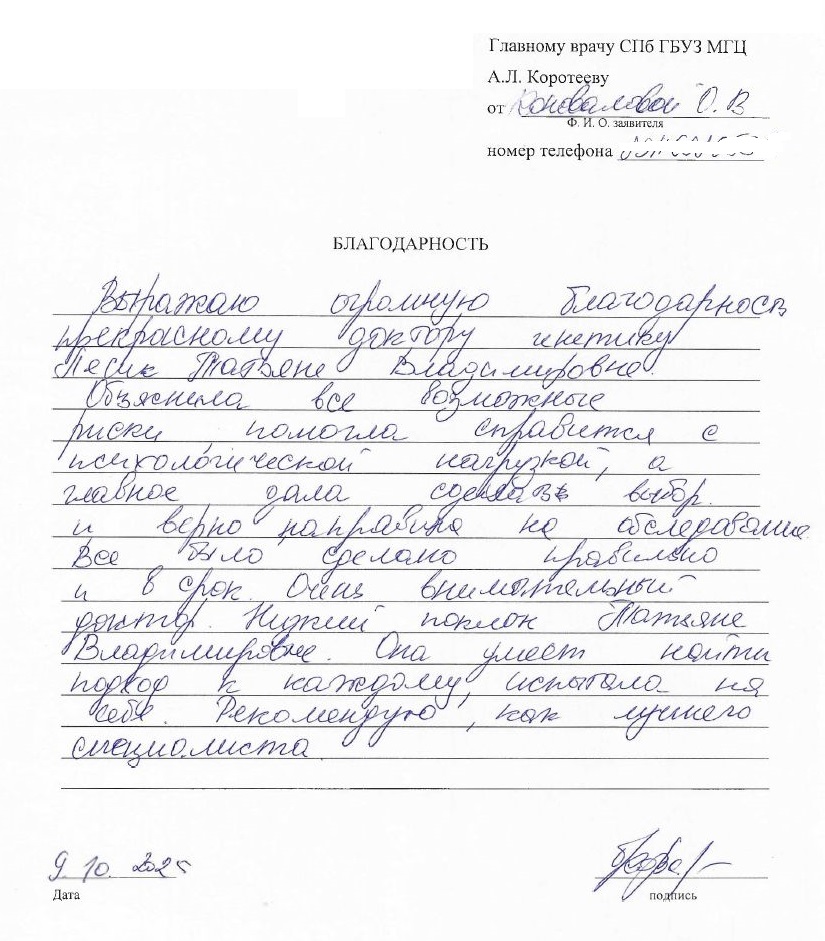 Главному врачу СПб ГБУЗ МГЦ
А.Л. Коротееву
от Коноваловой О.В
Ф. И. О. заявителя
номер телефона
БЛАГОДАРНОСТЬ
Выражаю огромную благодарность
прекрасному доктору генетику
Лесик Татьяне Владимировне.
Объяснила все возможные
риски, помогла справится с
психологической нагрузкой, а
главное дала сделать выбор.
и верно направила на обследование
Все было сделано правильно
и в срок. Очень внимательный
доктор. Низкий поклон Татьяне
Владимировне. Она умеет найти
подход к каждому, испытала на
себе. Рекомендую, как лучшего
специалиста.
9. 10. 2025
Дата
подпись